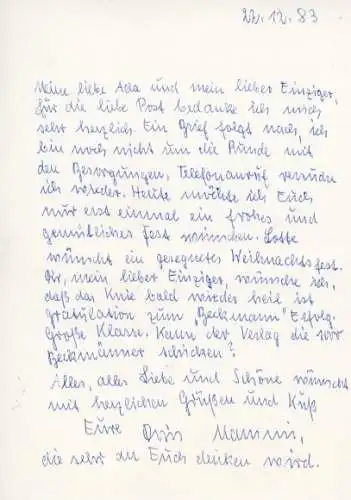 22.12.83
Meine liebe Ada und mein lieber Einziger,
für die liebe Post bedanke ich mich
sehr herzlich. Ein Brief folgt nach, ich
bin noch nicht um die Runde mit
den Besorgungen, Telefonanruf
ich wieder. Heute möchte ich Euch
nur erst einmal ein frohes und
gemütliches Fest wünschen. Lotte
wünscht ein gesegnetes Weihnachtsfest.
Dir, mein lieber Einziger, wünsche ich,
daß das Knie bald wieder heil ist
Gratulation zum "Beckmann" Erfolg.
Große Klasse. Kann der Verlag die
Beckmänner schicken?
Alles, alles Liebe und Schöne wünscht
mit herzlichen Grüßen und Kuß
Eure Mammi,
die sehr an Euch denken wird.